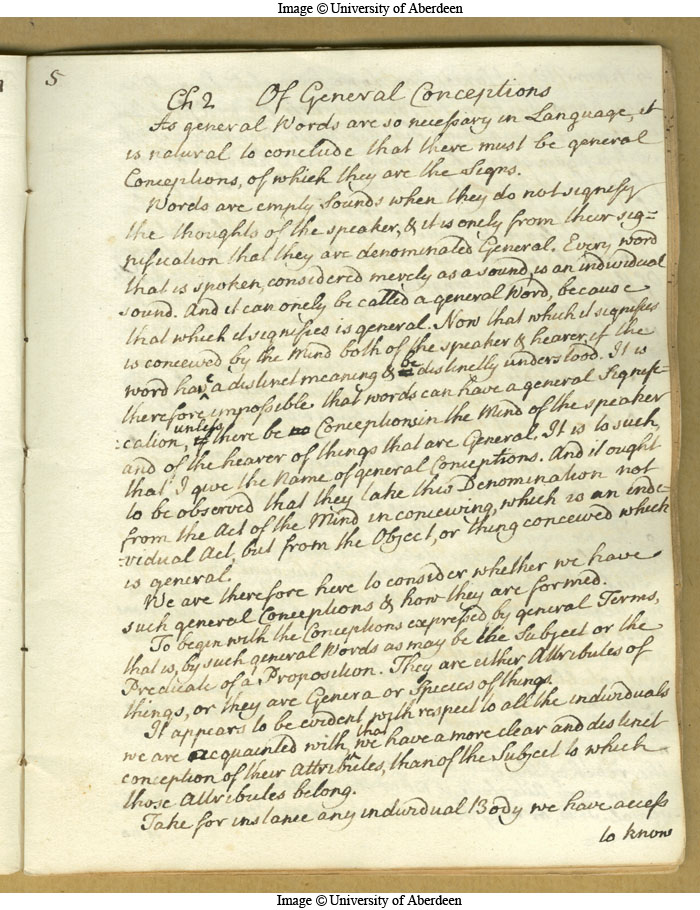 Image © University of Aberdeen
5
Ch 2 Of General Conceptions
As general Words are so necessary in Language, it
is natural to conclude that there must be general
Conceptions, of which they are the Signs.
Words are empty Sounds when they do not signify
the thoughts of the speaker, & it is onely from their sig=
nification that they are denominated General. Every word
that is spoken, considered merely as a sound, is an individual
sound. And it can onely be called a general Word, because
that which it signifies is general. Now that which it signifies
is conceived by the Mind both of the speaker & hearer, if the
word have a distinct meaning & be distinctly understood. It is
therefore impossible that words can have a general Signifi-
:cation, unless there be Conceptions in the Mind of the speaker
and of the hearer of things that are General. It is to such,
that I give the Name of general Conceptions. And it ought
to be observed that they take this Denomination not
from the Act of the Mind in conceiving, which is an indi-
-vidual Act, but from the Object, or thing conceived which
is general.
We are therefore here to consider whether we have
such general Conceptions & how they are formed.
To begin with the Conceptions expressed by general Terms,
that is, by such general Words as may be the Subject or the
Predicate of a Proposition. They are either Attributes of
things, or they are Genera or Species of things.
It appears to be evident with respect to all the individuals
we are acquainted with, that we have a more clear and distinct
conception of their Attributes, than of the Subject to which
those Attributes belong.
Take for instance any individual Body we have access
to know
Image © University of Aberdeen